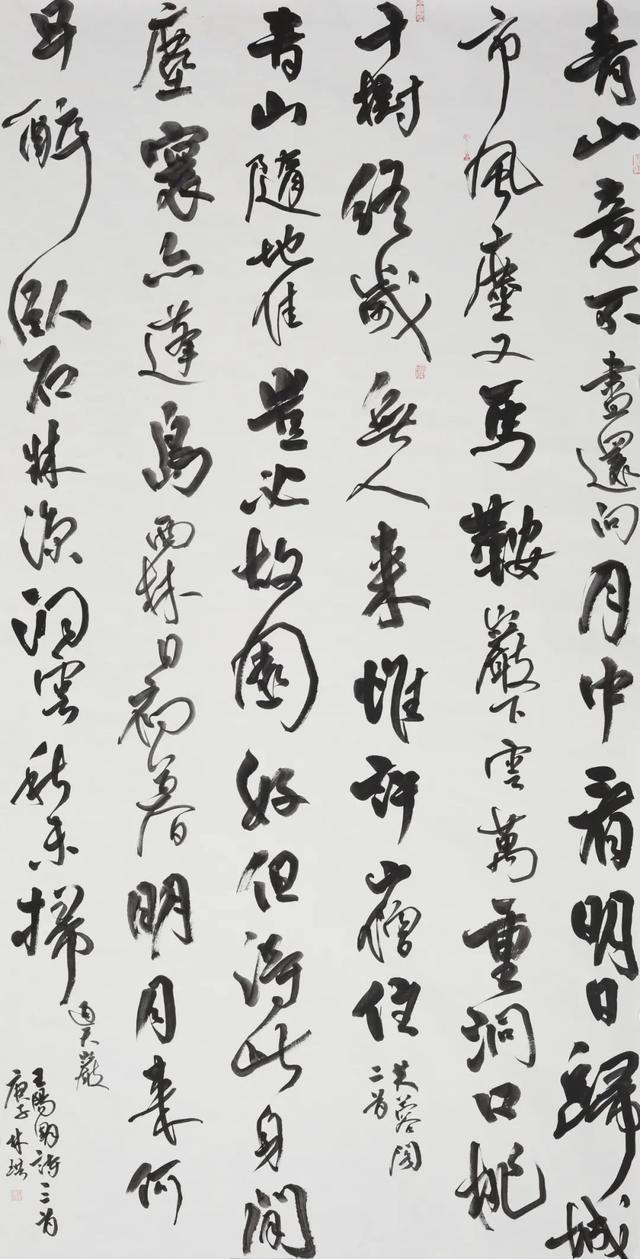 青山意不盡還向月中看明日歸城
市風塵又馬鞍巖下雲萬重洞口桃
千樹終歲無人來惟許山僧住
芙蓉閣
二首
青山隨地佳豈必故園好但得此身閒
塵寰亦蓬島西林日初暮明月來何
早醉臥石牀涼洞雲秋未掃
通天巖
王陽明詩三首
庚子林